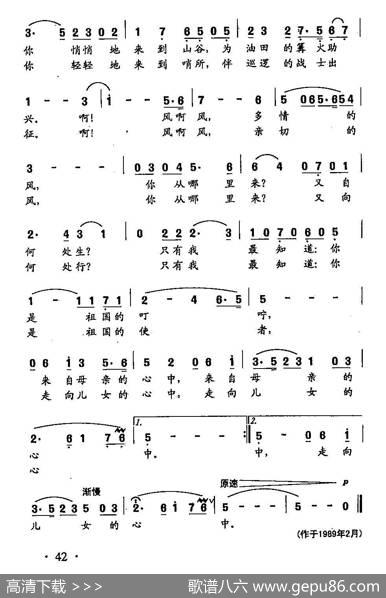 3· 5 2 3 0 2 | 1 7 6 5 3 5 | 2 3 7· 5 6 7 |
你 悄悄 地 来 到 山谷, 为 油田 的 篝 火助
你 轻轻 地 来 到 哨所, 伴 巡逻 的 战士出
1 - - 3 | 1 - - 5·6 | 7 5· 5 - | 5 065·654 |
兴。 啊! 风啊 风, 多情 的
征。 啊! 风啊 风, 亲切 的
3 - - - | 0 3 0 4 5· | 6 6 - - | 0 7 0 1 |
风, 你 从哪 里 来? 又 自
风, 你 从哪 里 来? 又 向
2· 4 3 1 | 0 2 2· 3 | 1 0 7 0 6 0 5 |
何 处生? 只有 我 最 知 道: 你
何 处行? 只有 我 最 知 道: 你
1 - 1 1 7 1 | 2 - - 6·5 | 5 - - - |
是 祖国 的 叮 咛,
是 祖国 的 使 者,
0 6 i 3 5·6 | 5 2 0 6 i | 3·5 2 3 1 0 3 |
来 自 母 亲 的 心 中, 来 自 母 亲 的
走 向 儿 女 的 心 中。 走 向 儿 女 的
1.
2.
2· 6 1 7 6 | 5 - - - :| 5 - 0 6 i |
心 中。 中, 走向
心
渐慢
原速
p
3·5 2 3 5 0 3 | 2· 6 1 7 6 | 5 - - - | 5 - - - ‖
儿 女 的 心 中。
(作于1989年2月)
· 42 ·
高清下载 >>>>
歌谱八六 www.gepu86.com